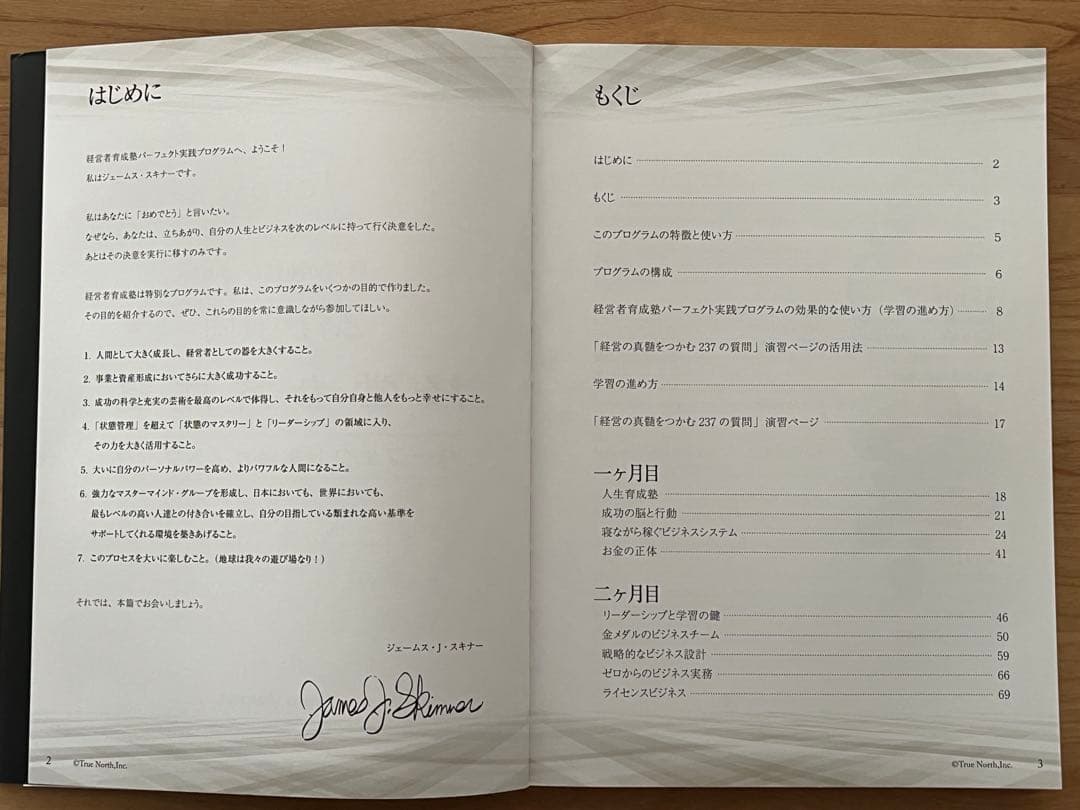 はじめに
経営者育成塾パーフェクト実践プログラムへ、ようこそ！
私はジェームス・スキナーです。
私はあなたに「おめでとう」と言いたい。
なぜなら、あなたは、立ちあがり、自分の人生とビジネスを次のレベルに持って行く決意をした。
あとはその決意を実行に移すのみです。
経営者育成塾は特別なプログラムです。私は、このプログラムをいくつかの目的で作りました。
その目的を紹介するので、ぜひ、これらの目的を常に意識しながら参加してほしい。
1. 人間として大きく成長し、経営者としての器を大きくすること。
2. 事業と資産形成においてさらに大きく成功すること。
3. 成功の科学と充実の芸術を最高のレベルで体得し、それをもって自分自身と他人をもっと幸せにすること。
4.「状態管理」を超えて「状態のマスタリー」と「リーダーシップ」の領域に入り、
その力を大きく活用すること。
5. 大いに自分のパーソナルパワーを高め、よりパワフルな人間になること。
6. 強力なマスターマインド・グループを形成し、日本においても、世界においても、
最もレベルの高い人達との付き合いを確立し、自分の目指している類まれな高い基準を
サポートしてくれる環境を築きあげること。
7. このプロセスを大いに楽しむこと。（地球は我々の遊び場なり！）
それでは、本篇でお会いしましょう。
ジェームス・J・スキナー
James J. Skinner
2 ©True North,Inc.
もくじ
はじめに 2
もくじ 3
このプログラムの特徴と使い方 5
プログラムの構成 6
経営者育成塾パーフェクト実践プログラムの効果的な使い方（学習の進め方） 8
「経営の真髄をつかむ 237 の質問」演習ページの活用法 13
学習の進め方 14
「経営の真髄をつかむ 237 の質問」演習ページ 17
一ヶ月目
人生育成塾 18
成功の脳と行動 21
寝ながら稼ぐビジネスシステム 24
お金の正体 41
二ヶ月目
リーダーシップと学習の鍵 46
金メダルのビジネスチーム 50
戦略的なビジネス設計 59
ゼロからのビジネス実務 66
ライセンスビジネス 69
©True North,Inc. 3